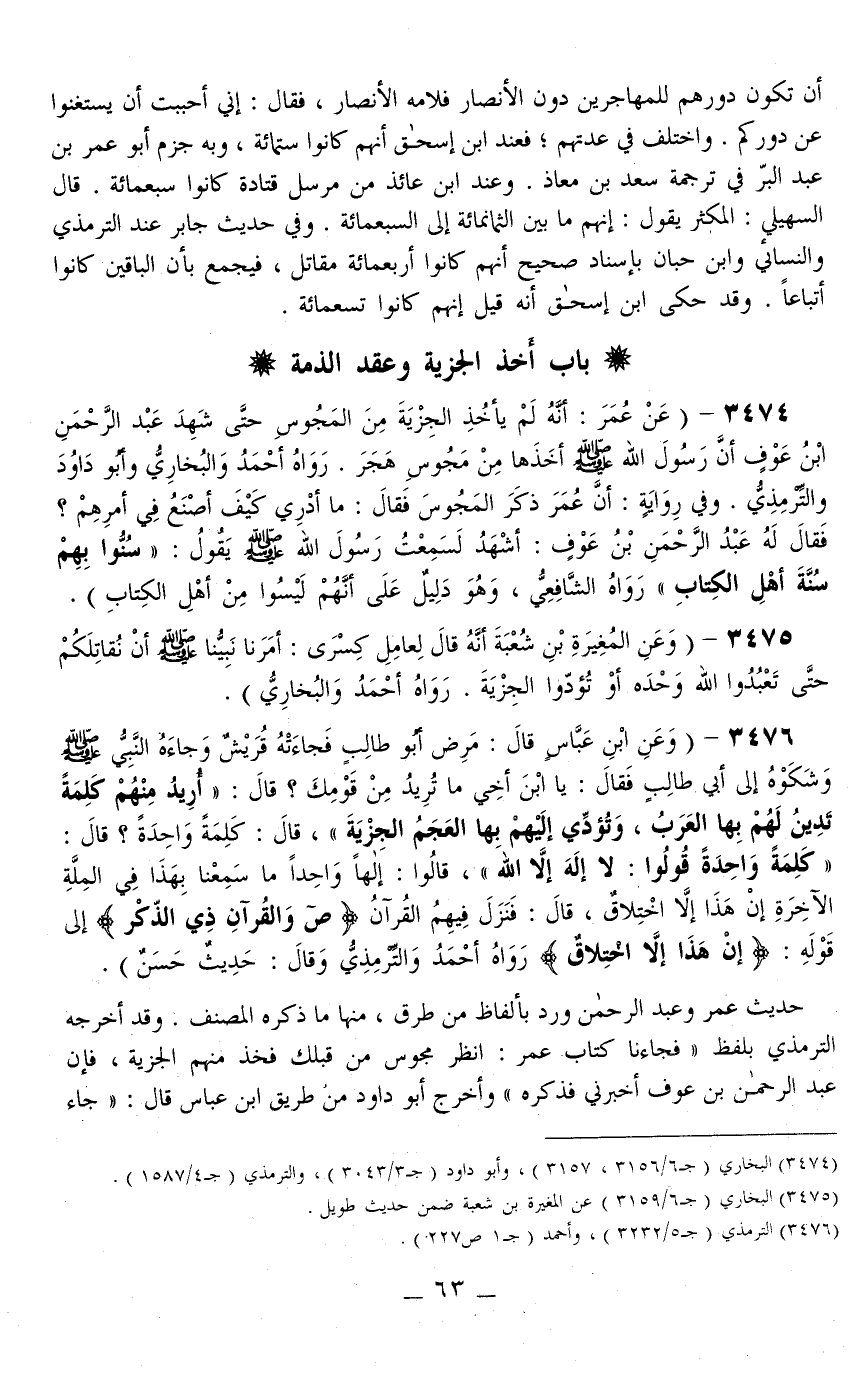 أن تكون دورهم للمهاجرين دون الأنصار فلامه الأنصار ، فقال : إني أحببت أن يستغنوا
عن دوركم . واختلف في عدتهم ؛ فعند ابن إسحٰق أنهم كانوا ستمائة ، وبه جزم أبو عمر بن
عبد البرّ في ترجمة سعد بن معاذ . وعند ابن عائذ من مرسل قتادة كانوا سبعمائة . قال
السهيلي : المكثر يقول : إنهم ما بين الثمانمائة إلى السبعمائة . وفي حديث جابر عند الترمذي
والنسائي وابن حبان بإسناد صحيح أنهم كانوا أربعمائة مقاتل ، فيجمع بأن الباقين كانوا
أتباعاً . وقد حكى ابن إسحٰق أنه قيل إنهم كانوا تسعمائة .
باب أَخذ الجزية وعقد الذمة
٣٤٧٤ – ( عَنْ عُمَرَ : أنَّهُ لَمْ يأخُذِ الجِزْيَةَ مِنَ المَجُوسِ حتَّى شَهِدَ عَبْد الرَّحْمَنِ
ابْنُ عَوْفٍ أنَّ رَسُولَ الله ﷺ أخَذَها مِنْ مَجُوسِ هَجَرَ . رَوَاهُ أحْمَدُ وَالبُخارِيُّ وأبُو دَاوُدَ
والتِّرْمِذِيُّ . وفي رِوَايَةٍ : أنَّ عُمَرَ ذكَرَ المَجُوسَ فَقالَ : ما أدْرِي كَيْفَ أصْنَعُ فِي أمرِهِمْ ؟
فَقالَ لَهُ عَبْدُ الرَّحْمَنِ بْنُ عَوْفٍ : أشْهَدُ لَسَمِعْتُ رَسُولَ الله ﷺ يَقُولُ : « سنُّوا بِهِمْ
سُنَّةَ أهْلِ الكِتابِ » رَوَاهُ الشَّافِعِيُّ ، وَهُوَ دَلِيلٌ عَلَى أنَّهُمْ لَيْسُوا مِنْ أهْلِ الكِتابِ ) .
٣٤٧٥ – ( وَعَنِ المُغِيرَةِ بْنِ شُعْبَةَ أنَّهُ قالَ لِعامِلِ كِسْرَى : أمَرَنا نَبِيُّنا ﷺ أنْ نُقاتِلَكُمْ
حتَّى تَعْبُدُوا الله وَحْدَه أوْ تُؤدّوا الجِزْيَةَ . رَوَاهُ أحْمَدُ وَالبُخارِيُّ ) .
٣٤٧٦ – ( وَعَنِ ابْنِ عَبَّاسٍ قالَ : مَرِض أبُو طالِبٍ فَجاءَتْهُ قُرَيْشٌ وَجاءَهُ النَّبِيُّ ﷺ
وَشَكَوْهُ إلى أبي طالِبٍ فَقالَ : يا ابْنَ أخِي ما تُرِيدُ مِنْ قَوْمِكَ ؟ قالَ : « أُرِيدُ مِنْهُمْ كَلِمَةً
تَدِينُ لَهُمْ بِها العَرَبُ ، وَتُؤدِّي إلَيْهِمْ بِها العَجَمُ الجِزْيَةَ » ، قالَ : كَلِمَةً وَاحِدَةً ؟ قالَ :
« كَلِمَةً وَاحِدَةً قُولُوا : لا إلَهَ إلَّا الله » ، قالُوا : إلٰهاً وَاحِداً ما سَمِعْنا بِهَذَا فِي المِلَّةِ
الآخِرَةِ إنْ هَذَا إلَّا اخْتِلاقٌ ، قالَ : فَنَزَلَ فِيهِمُ القُرآنُ ﴿ صۤ وَالقُرآنِ ذِي الذّكْر ﴾ إلى
قَوْلِهِ : ﴿ إنْ هَذَا إلَّا اخْتِلاقٌ ﴾ رَوَاهُ أحْمَدُ وَالتِّرْمِذِيُّ وَقالَ : حَدِيثٌ حَسَنٌ ) .
حديث عمر وعبد الرحمٰن ورد بألفاظ من طرق ، منها ما ذكره المصنف . وقد أخرجه
الترمذي بلفظ « فجاءنا كتاب عمر : انظر مجوس من قبلك فخذ منهم الجزية ، فإن
عبد الرحمـٰن بن عوف أخبرني فذكره » وأخرج أبو داود من طريق ابن عباس قال : « جاء
(٣٤٧٤) البخاري ( جـ٣١٥٦/٦ ، ٣١٥٧ ) ، وأبو داود ( جـ٣٠٤٣/٣ ) ، والترمذي ( جـ١٥٨٧/٤ ) .
(٣٤٧٥) البخاري ( جـ٣١٥٩/٦ ) عن المغيرة بن شعبة ضمن حديث طويل .
(٣٤٧٦) الترمذي ( جـ٣٢٣٢/٥ ) ، وأحمد ( جـ١ ص٢٢٧ ) .
– ٦٣ –